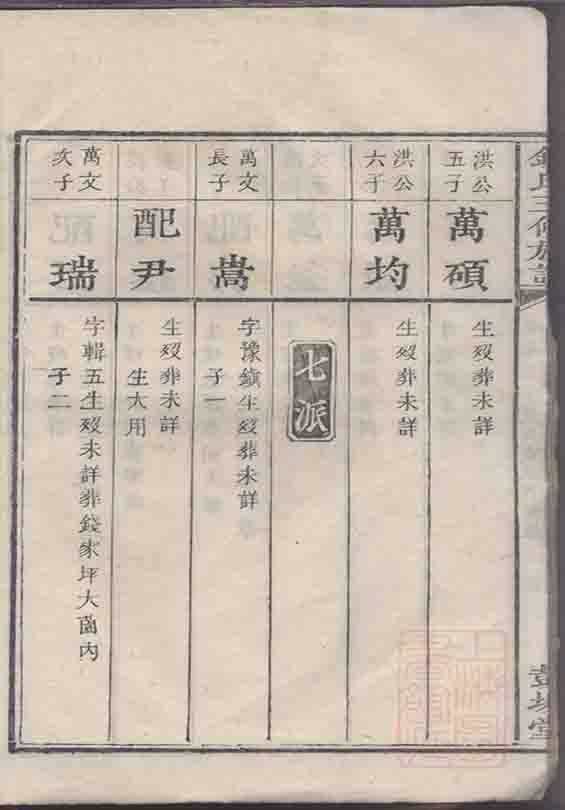 錢氏三修族譜
彭城堂
洪公
五子
萬碩
生歿葬未詳
洪公
六子
萬均
生歿葬未詳
七派
萬文
長子
嵩
字豫鎮生歿葬未詳
子一
配尹
生歿葬未詳
生大用
萬文
次子
瑞
字輯五生歿未詳葬錢家坪大凿內
子二